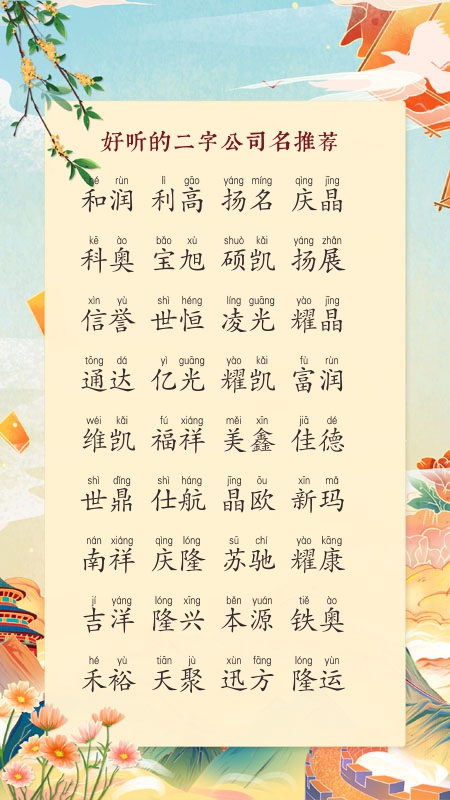 好听的二字公司名推荐
hé rùn lì gāo yáng míng qìng jīng
和润 利高 扬名 庆晶
kē ào bǎo xù shuò kǎi yáng zhǎn
科奥 宝旭 硕凯 扬展
xìn yù shì héng líng guāng yào jīng
信誉 世恒 凌光 耀晶
tōng dá yì guāng yào kǎi fù rùn
通达 亿光 耀凯 富润
wéi kǎi fú xiáng měi xīn jiā dé
维凯 福祥 美鑫 佳德
shì dǐng shì háng jīng ōu xīn mǎ
世鼎 仕航 晶欧 新玛
nán xiáng qìng lóng sū chí yào kāng
南祥 庆隆 苏驰 耀康
jí yáng lóng xīng běn yuán tiě ào
吉洋 隆兴 本源 铁奥
hé yù tiān jù xùn fāng lóng yùn
禾裕 天聚 迅方 隆运